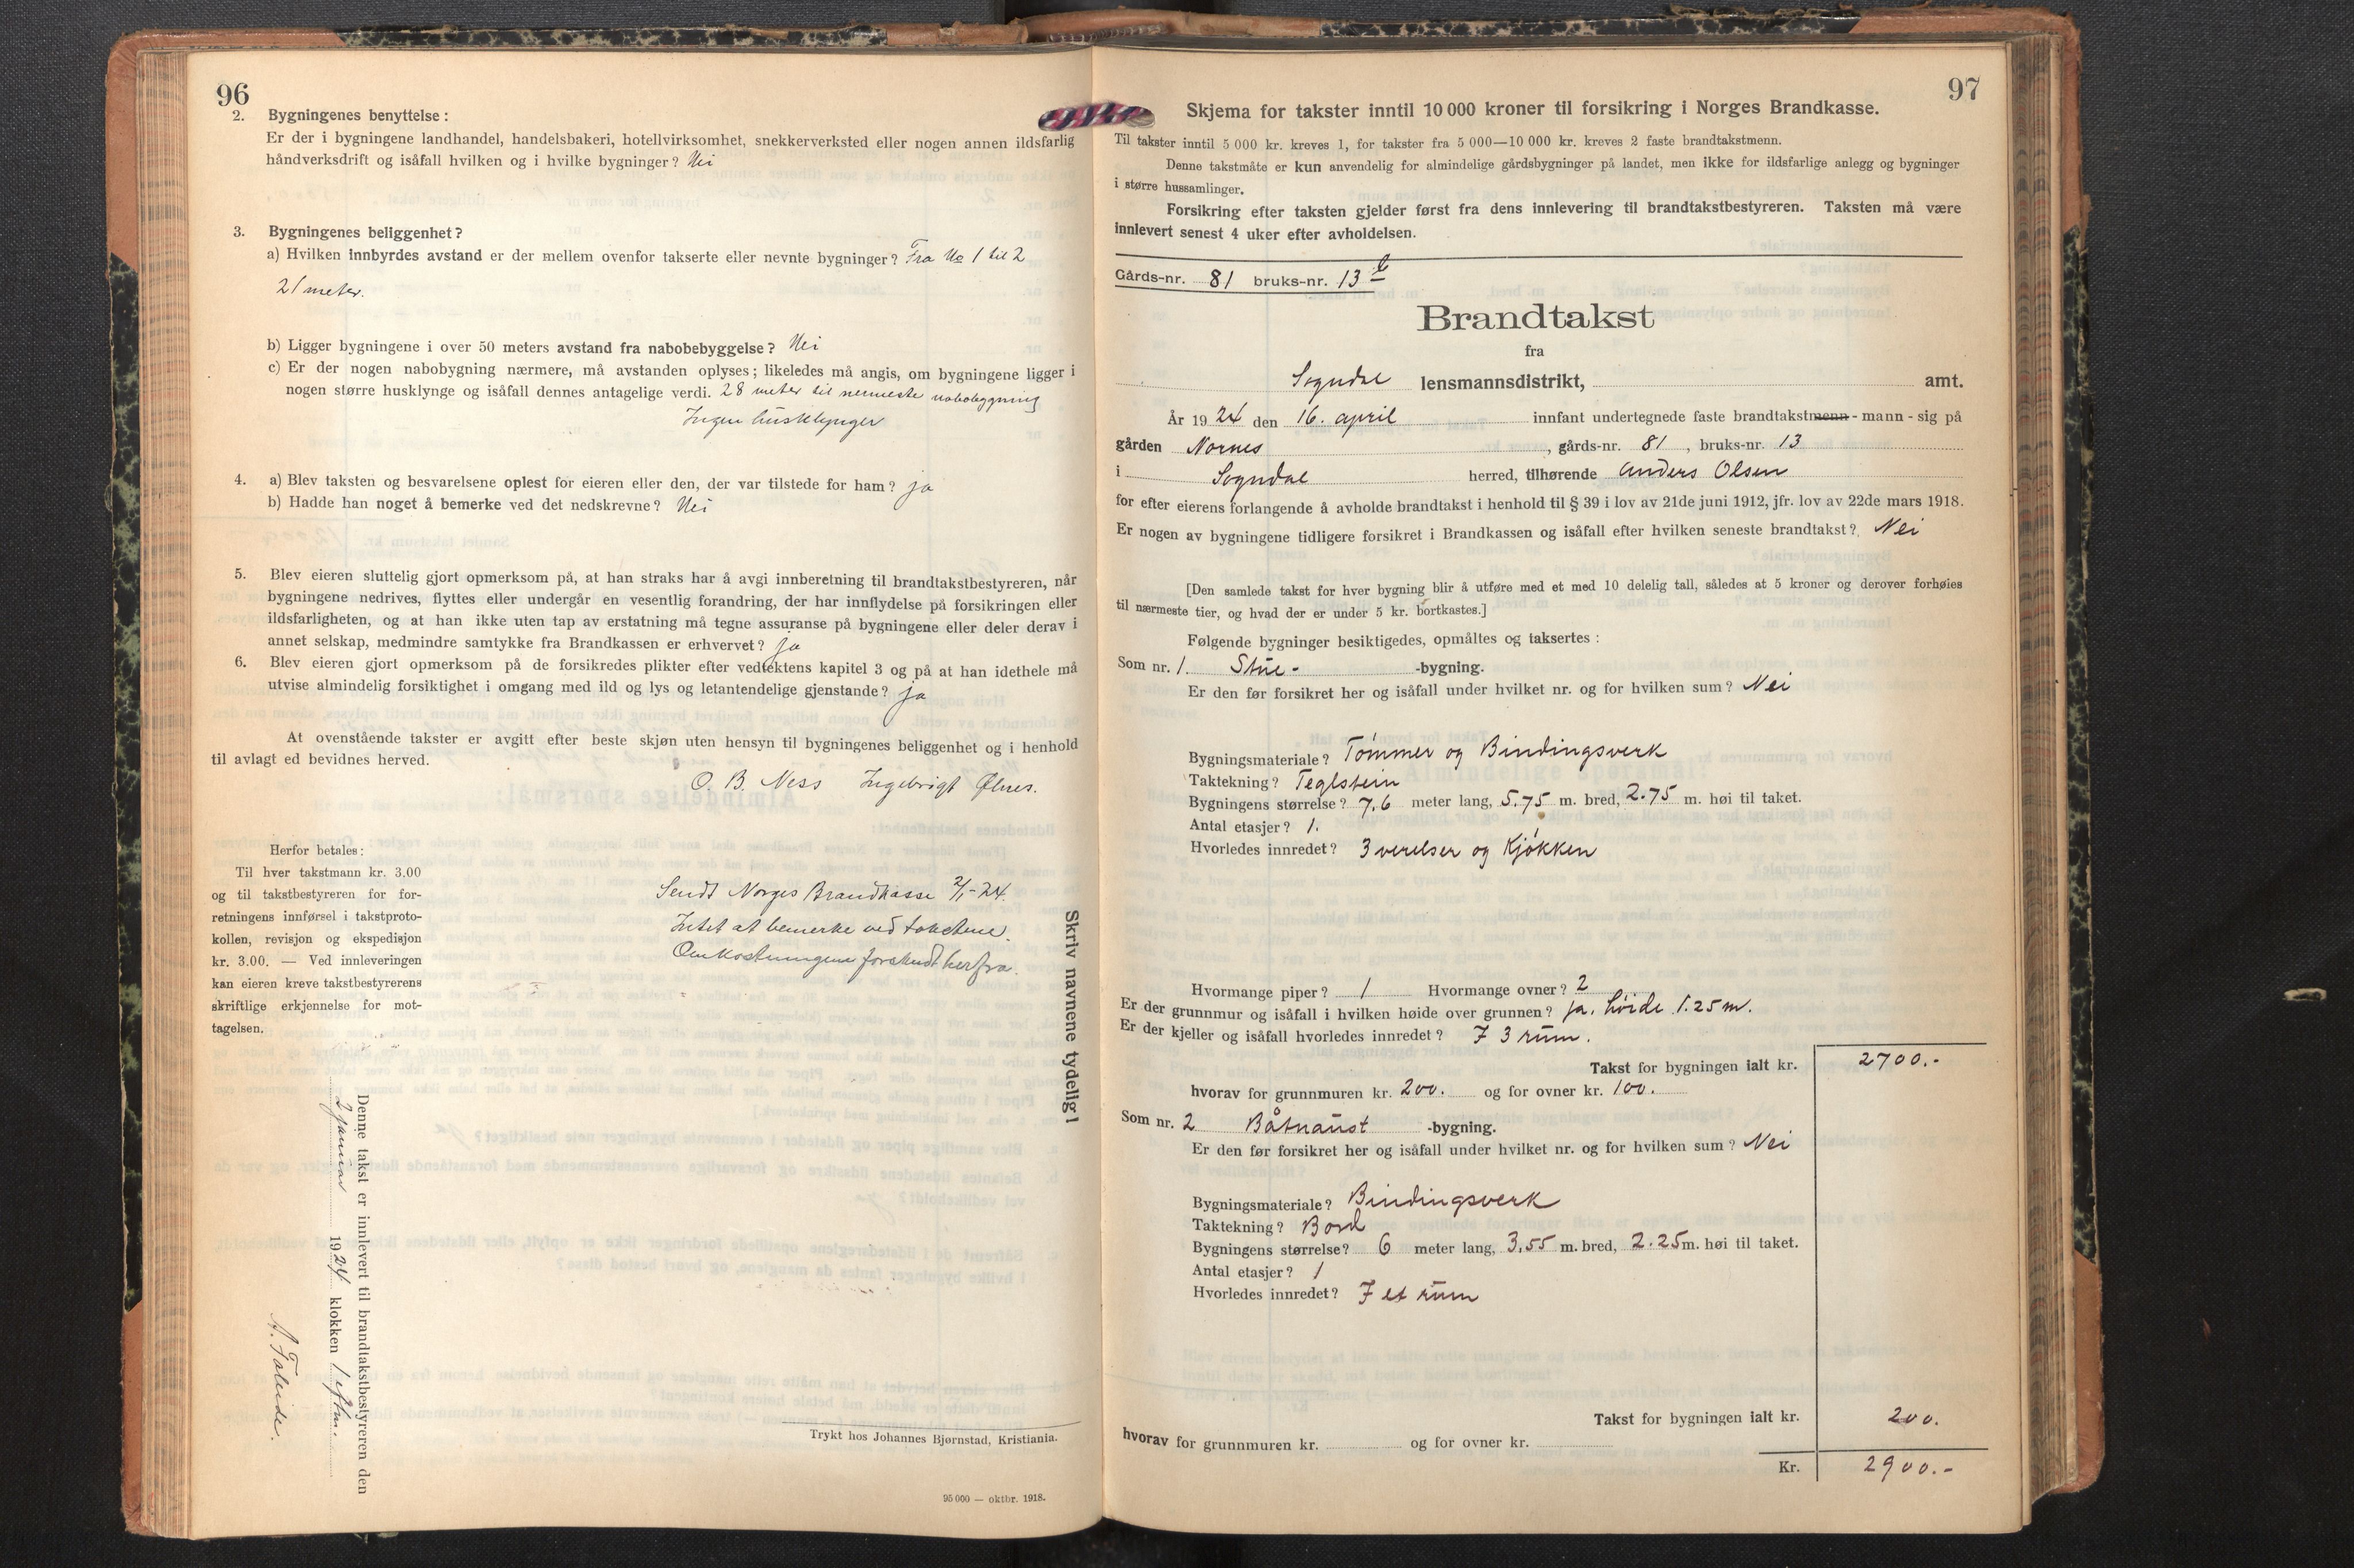 96
2. Bygningenes benyttelse:
Er der i bygningene landhandel, handelsbakeri, hotellvirksomhet, snekkerverksted eller nogen annen ildsfarlig
håndverksdrift og isåfall hvilken og i hvilke bygninger? Nei
3. Bygningenes beliggenhet?
a) Hvilken innbyrdes avstand er der mellem ovenfor takserte eller nevnte bygninger? Fra No 1 til 2
21 meter.
b) Ligger bygningene i over 50 meters avstand fra nabobebyggelse? Nei
c) Er der nogen nabobygning nærmere, må avstanden oplyses; likeledes må angis, om bygningene ligger i
nogen større husklynge og isåfall dennes antagelige verdi. 28 meter til nermeste nabobygning
Ingen husklynger
4. a) Blev taksten og besvarelsene oplest for eieren eller den, der var tilstede for ham? ja
b) Hadde han noget å bemerke ved det nedskrevne? Nei
5. Blev eieren sluttelig gjort opmerksom på, at han straks har å avgi innberetning til brandtakstbestyreren, når
bygningene nedrives, flyttes eller undergår en vesentlig forandring, der har innflydelse på forsikringen eller
ildsfarligheten, og at han ikke uten tap av erstatning må tegne assuranse på bygningene eller deler derav i
annet selskap, medmindre samtykke fra Brandkassen er erhvervet? ja
6. Blev eieren gjort opmerksom på de forsikredes plikter efter vedtektens kapitel 3 og på at han idethele må
utvise almindelig forsiktighet i omgang med ild og lys og letantendelige gjenstande? ja
At ovenstående takster er avgitt efter beste skjøn uten hensyn til bygningenes beliggenhet og i henhold
til avlagt ed bevidnes herved.
O. B. Ness Ingebrigt Ølnes.
Herfor betales:
Til hver takstmann kr. 3.00
og til takstbestyreren for for-
retningens innførsel i takstproto-
kollen, revisjon og ekspedisjon
kr. 3.00. — Ved innleveringen
kan eieren kreve takstbestyrerens
skriftlige erkjennelse for mot-
tagelsen.
Sendt Norges Brandkasse 2/1-24.
Intet at bemerke ved takstene.
Omkostningene forskudt herfra.
Skriv navnene tydelig!
Denne takst er innlevert til brandtakstbestyreren den
2 januar 1924 klokken 1 eftm.
Trykt hos Johannes Bjørnstad, Kristiania.
95 000 — oktbr. 1918.
97
Skjema for takster inntil 10 000 kroner til forsikring i Norges Brandkasse.
Til takster inntil 5 000 kr. kreves 1, for takster fra 5 000—10 000 kr. kreves 2 faste brandtakstmenn.
Denne takstmåte er kun anvendelig for almindelige gårdsbygninger på landet, men ikke for ildsfarlige anlegg og bygninger
i større hussamlinger.
Forsikring efter taksten gjelder først fra dens innlevering til brandtakstbestyreren. Taksten må være
innlevert senest 4 uker efter avholdelsen.
Gårds-nr. 81 bruks-nr. 13 b
Brandtakst
fra
Sogndal lensmannsdistrikt, amt.
År 1924 den 16. april innfant undertegnede faste brandtakstmenn - mann - sig på
gården Nornes, gårds-nr. 81, bruks-nr. 13
i Sogndal herred, tilhørende Anders Olsen
for efter eierens forlangende å avholde brandtakst i henhold til § 39 i lov av 21de juni 1912, jfr. lov av 22de mars 1918.
Er nogen av bygningene tidligere forsikret i Brandkassen og isåfall efter hvilken seneste brandtakst? Nei
[Den samlede takst for hver bygning blir å utføre med et med 10 delelig tall, således at 5 kroner og derover forhøies
til nærmeste tier, og hvad der er under 5 kr. bortkastes.]
Følgende bygninger besiktigedes, opmåltes og taksertes:
Som nr. 1. Stue- -bygning.
Er den før forsikret her og isåfall under hvilket nr. og for hvilken sum? Nei
Bygningsmateriale? Tømmer og Bindingsverk
Taktekning? Teglstein
Bygningens størrelse? 7,6 meter lang, 5.75 m. bred, 2.75 m. høi til taket.
Antal etasjer? 1.
Hvorledes innredet? 3 verelser og Kjøkken
Hvormange piper? 1 Hvormange ovner? 2
Er der grunnmur og isåfall i hvilken høide over grunnen? ja. høide 1.25 m.
Er der kjeller og isåfall hvorledes innredet? I 3 rum.
Takst for bygningen ialt kr. 2700.-
hvorav for grunnmuren kr. 200. og for ovner kr. 100.
Som nr. 2 Båtnaust -bygning.
Er den før forsikret her og isåfall under hvilket nr. og for hvilken sum? Nei
Bygningsmateriale? Bindingsverk
Taktekning? Bord
Bygningens størrelse? 6 meter lang, 3,55 m. bred, 2.25 m. høi til taket.
Antal etasjer? 1
Hvorledes innredet? I et rum
Takst for bygningen ialt kr. 200.
hvorav for grunnmuren kr. og for ovner kr.
Kr. 2900.-